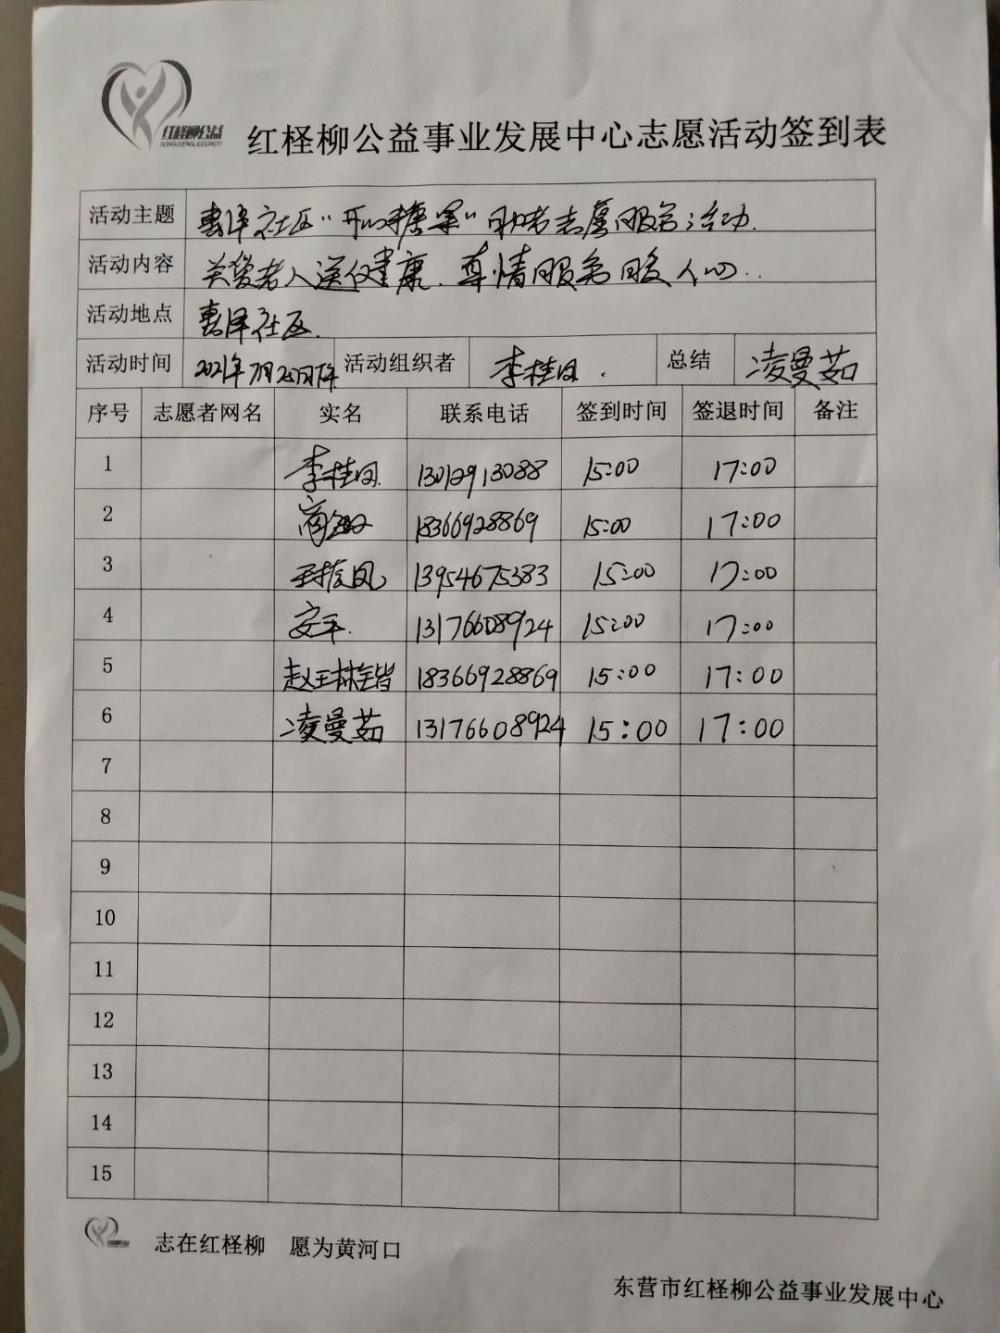 红柽柳公益
HONGCHENGLIUGONGYI
红柽柳公益事业发展中心志愿活动签到表
活动主题 惠泽社区“开心糖果”助老志愿服务活动.
活动内容 关爱老人送健康.尊情服务暖人心..
活动地点 惠泽社区.
活动时间 2021年7月 活动组织者 李桂凤. 总结 凌曼茹
序号 志愿者网名 实名 联系电话 签到时间 签退时间 备注
1 李桂凤. 13012913088 15:00 17:00
2 18366928869 15:00 17:00
3 13954675383 15:00 17:00
4 安平. 13176608924 15:00 17:00
5 赵王林 18366928869 15:00 17:00
6 凌曼茹 13176608924 15:00 17:00
7
8
9
10
11
12
13
14
15
志在红柽柳 愿为黄河口
东营市红柽柳公益事业发展中心